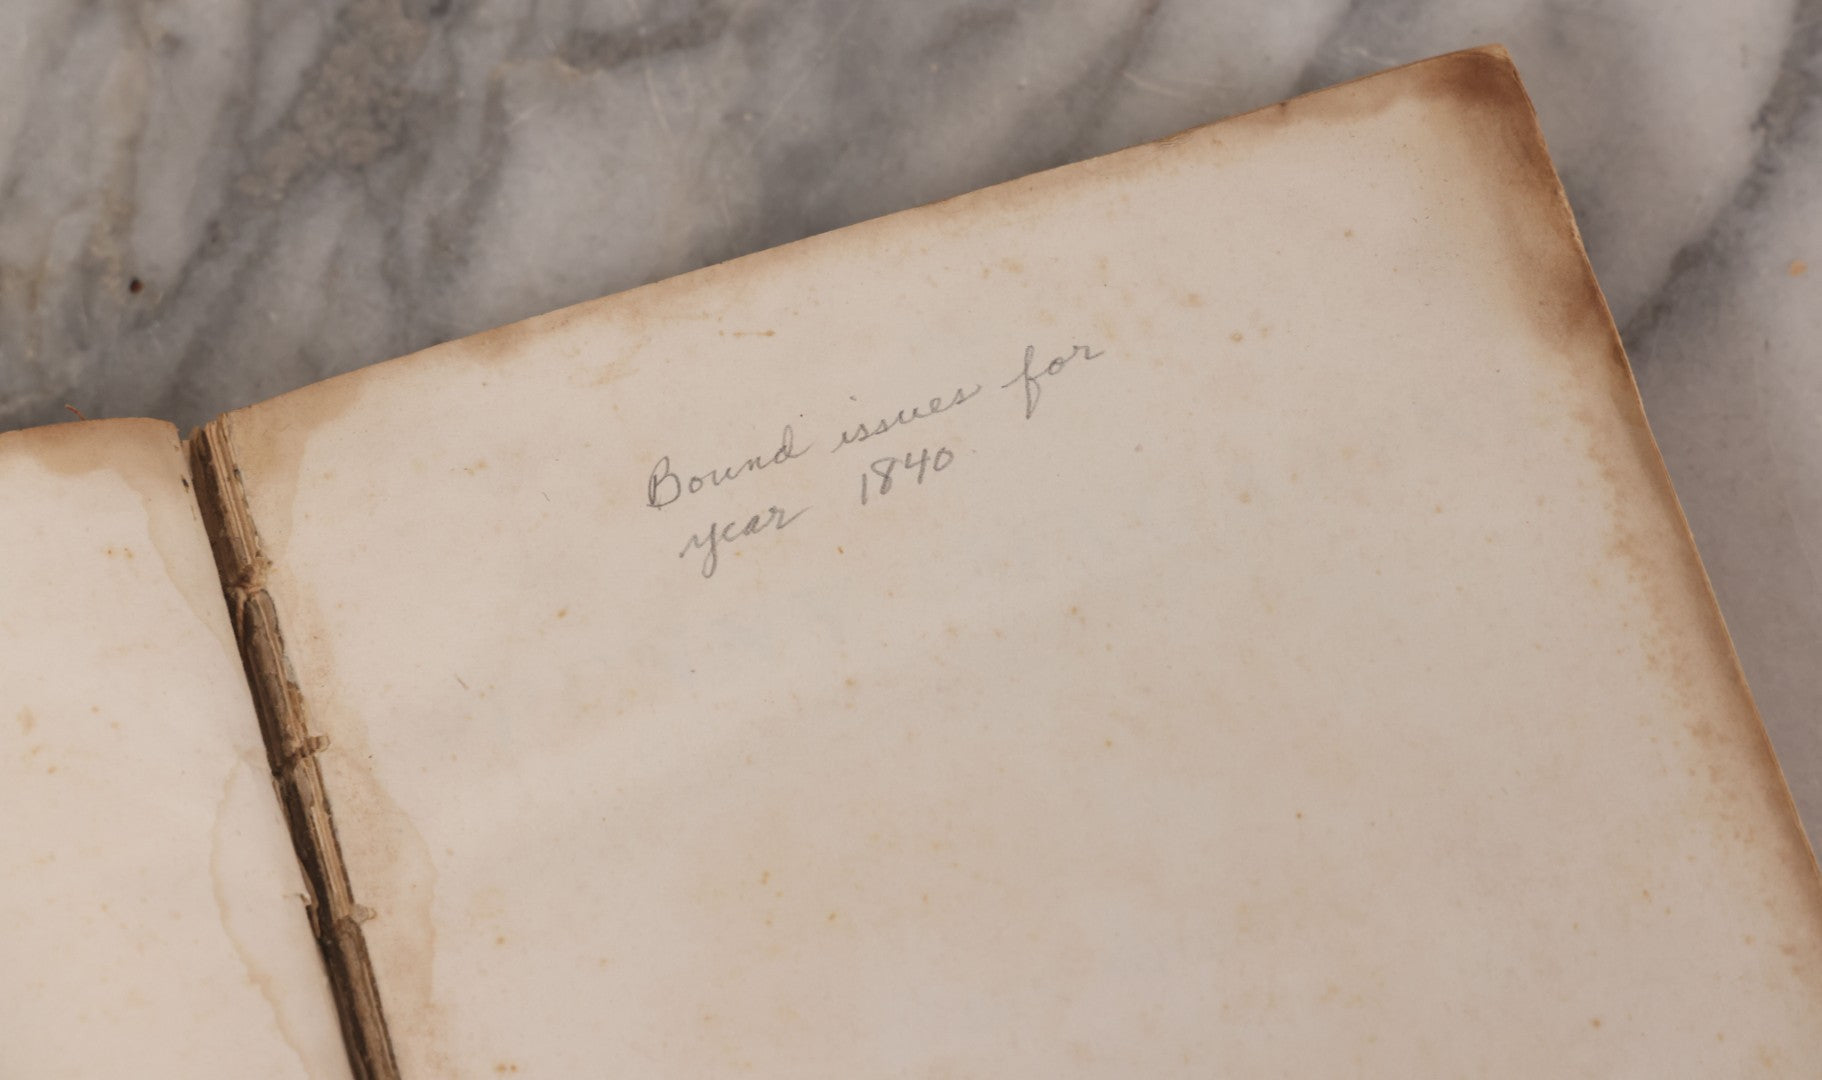 Bound issues for
year 1840